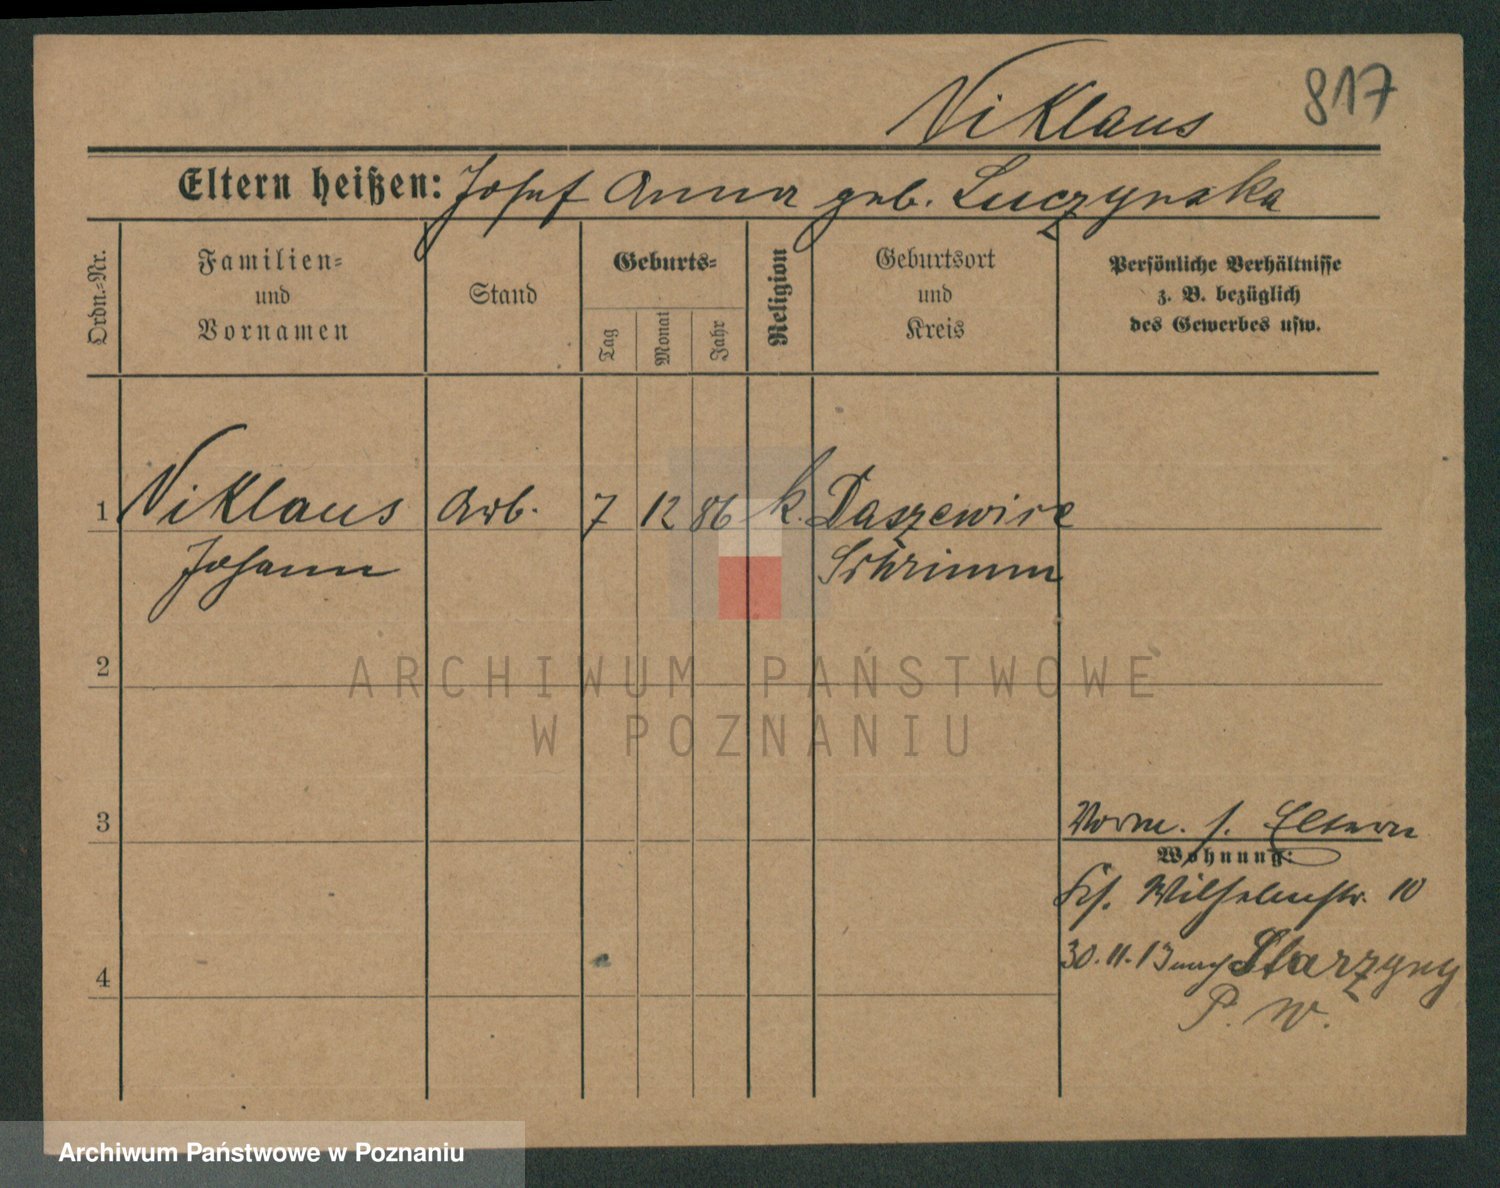 Niklaus 817
Eltern heißen: Josef Anna geb. Luczynska
Ordn.-Nr.
Familien-
und
Vornamen
Stand
Geburts-
Tag
Monat
Jahr
Religion
Geburtsort
und
Kreis
Persönliche Verhältnisse
z. B. bezüglich
des Gewerbes usw.
1 Niklaus Arb. 7 12 86 k. Daszewice
Johann Schrimm
2
ARCHIWUM PAŃSTWOWE
W POZNANIU
3
Vorm. s. Eltern
Wohnung:
Wilhelmstr. 10
4
30.11.13 nach Starzyny
P. W.
Archiwum Państwowe w Poznaniu